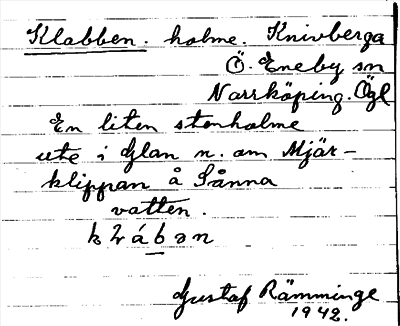 Klabben. holme. Knivberga
Ö. Eneby sn
Norrköping. Ögl
En liten stenholme
ute i Glan n. om Mjär-
klippan å Sånna
vatten.
Gustaf Rämminge
1942.